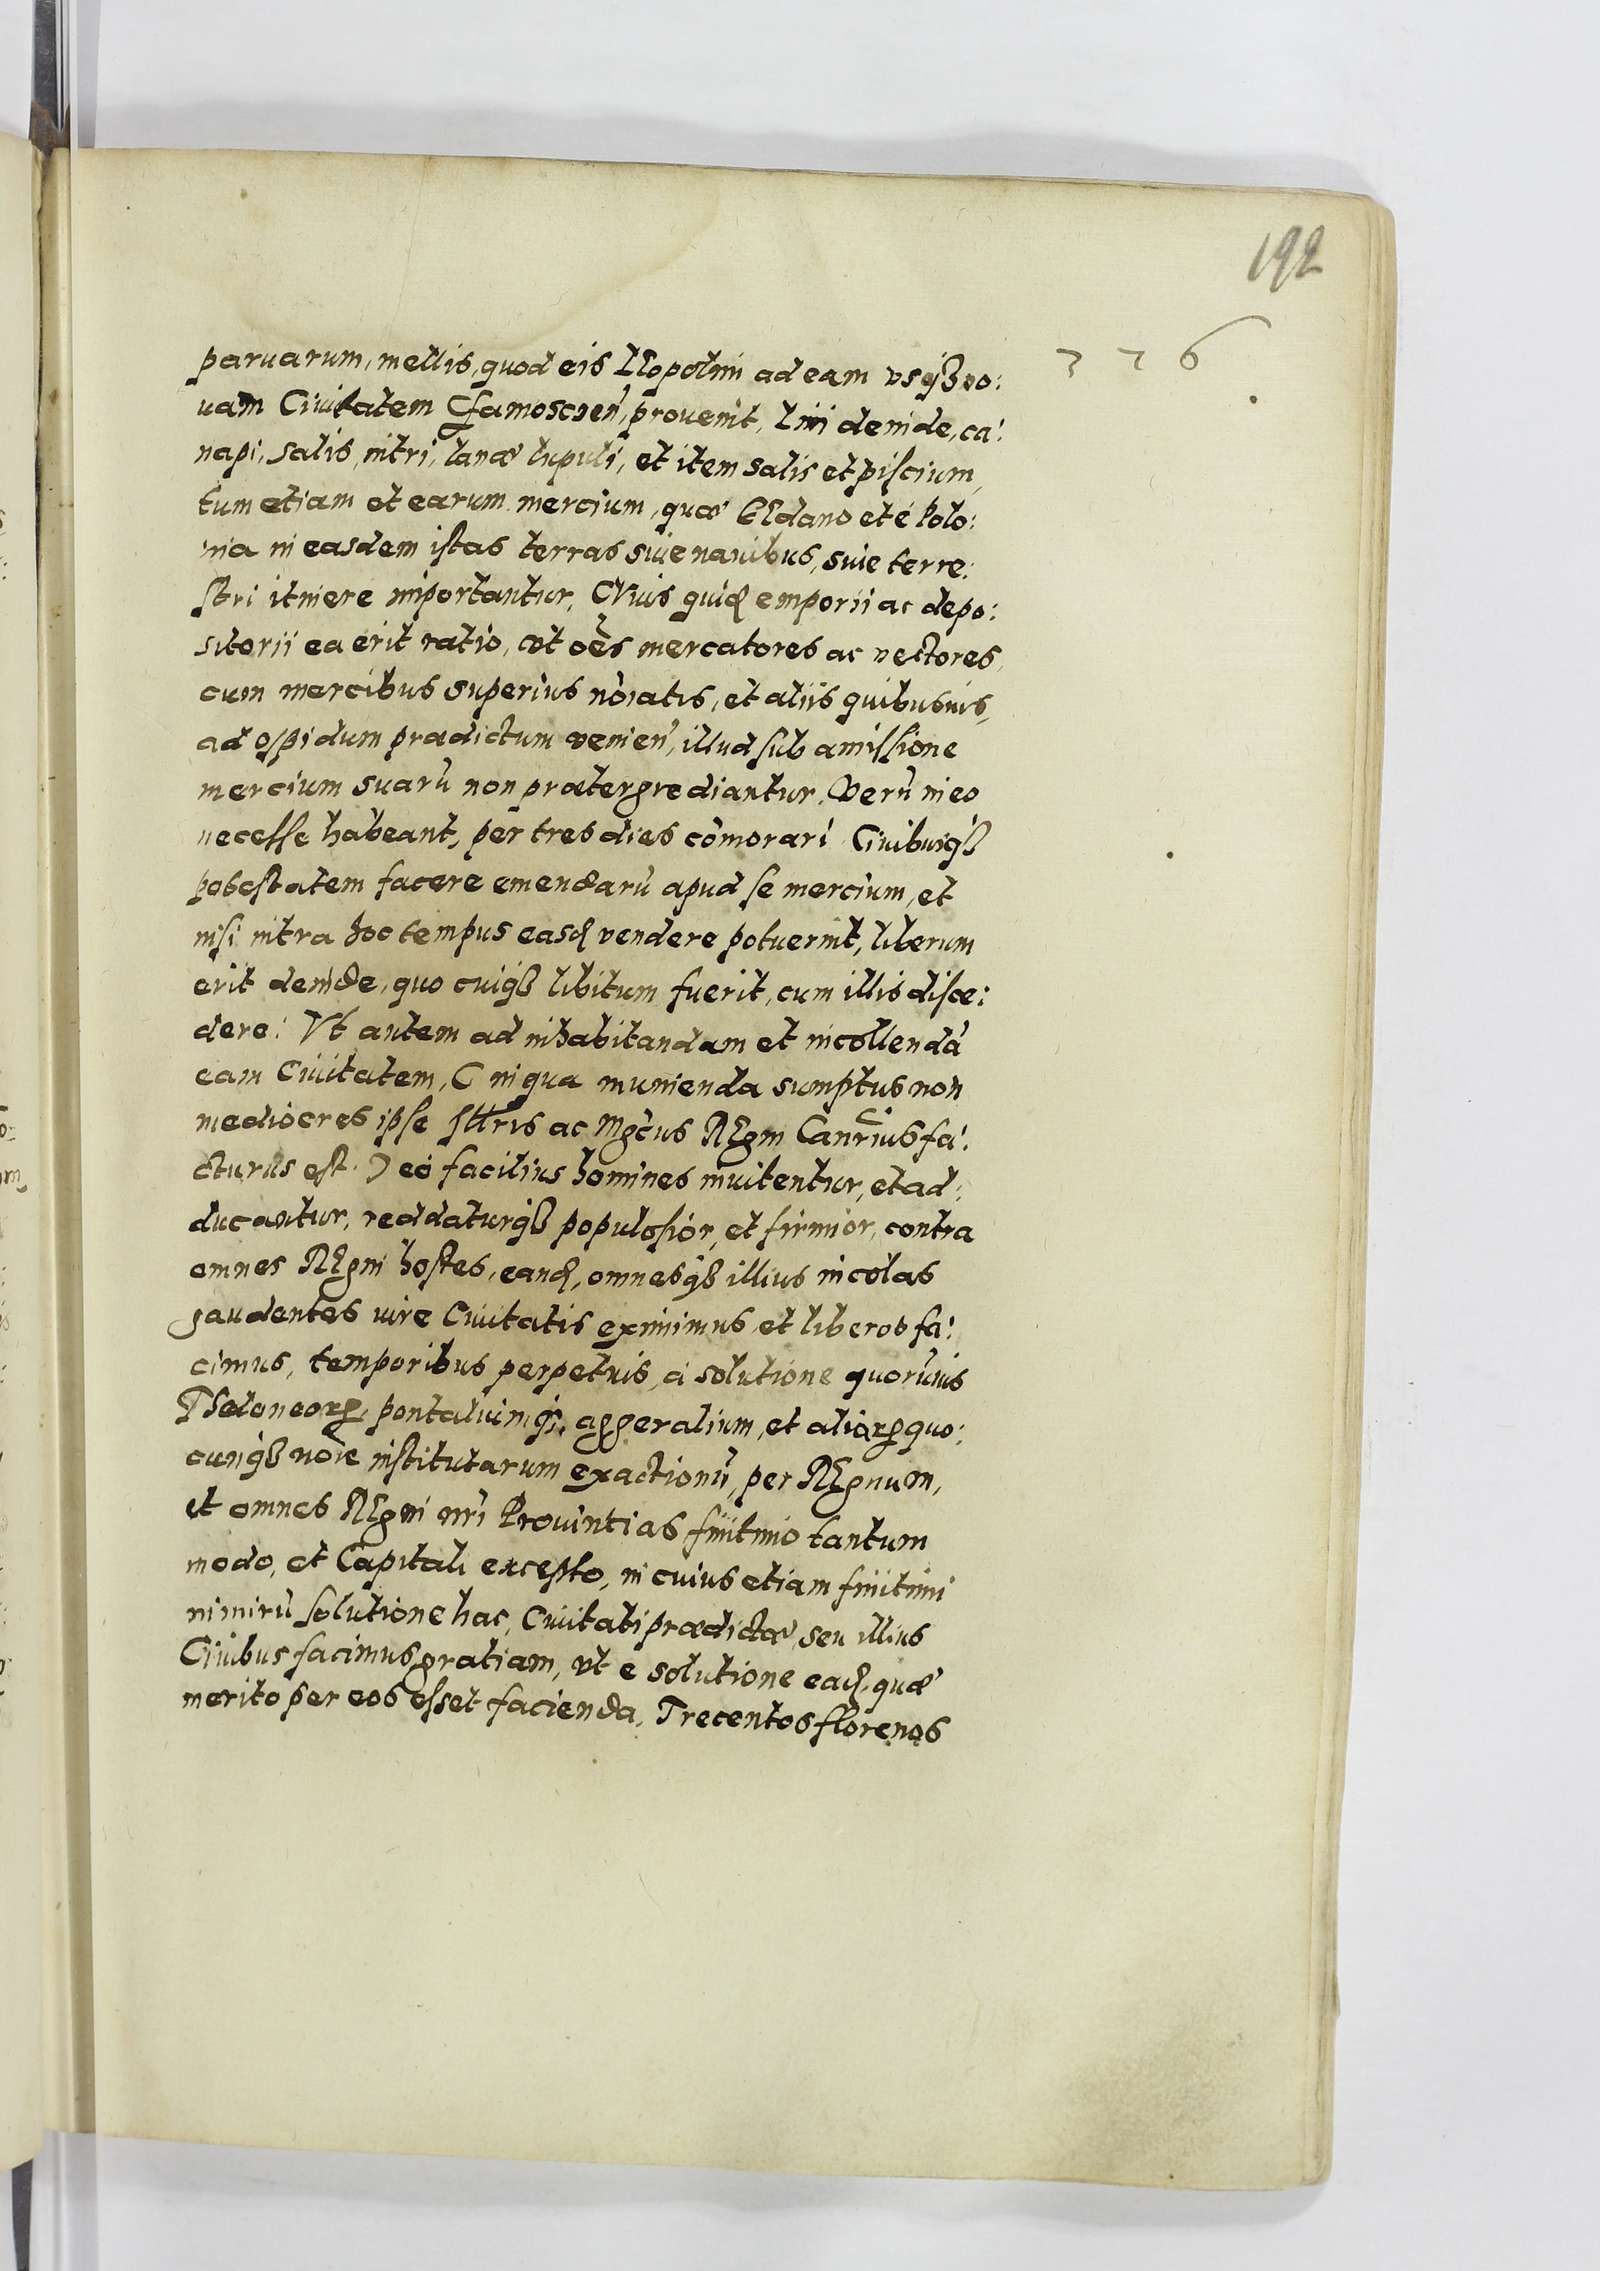 192
376
paruarum, mellis, quod eis Leopolim ad eam vsq3 no:
uam Ciuitatem Zamoscien̄, prouenit, lini deinde, ca:
napi, salis, nitri, lanæ lupuli, et item salis et piscium,
tum etiam et earum mercium, quæ Gedano et é Polo:
nia in easdem istas terras siue nauibus, siue terre:
stri itinere importantur, Cuius quid emporii ac depo:
sitorii ea erit ratio, vt oēs mercatores ac vectores
cum mercibus superius no͞iatis, et aliis quibusuis,
ad oppidum prædictum venien̄, illud sub amissione
mercium suarū non prætergrediantur. Verū in eo
necesse habeant, per tres dies cōmorari Ciuibusq3
potestatem facere emendarū apud se mercium, et
nisi intra hoc tempus easd vendere potuerint, liberum
erit deinde, quo cuiq3 libitum fuerit, cum illis disce:
dere: Vt autem ad inhabitandam et incollendā
eam Ciuitatem, C in qua munienda sumptus non
mediocres ipse Illr̄is ac Mgcūs REgni Canr̄ius fa:
cturus est. Ɔ eó facilius homines inuitentur, et ad:
ducantur, reddaturq3 populosior, et firmior, contra
omnes REgni hostes, eand, omnesq3 illius incolas
gaudentes iure Ciuitatis eximimus et liberos fa:
cimus, temporibus perpetuis, á solutione quorūuis
Theloneorꝝ, pontaliumq3, aggeralium, et aliorꝝ quo:
cunq3 no͞ie institutarum exactionū, per REgnum,
et omnes REgni nr̄i Prouintias finitimo tantum
modo, et Capitali excepto, in cuius etiam finitimi
nimirū solutione hac, Ciuitati prædictæ, seu illius
Ciuibus facimus gratiam, vt e solutione ead, quæ
merito per eos esset facienda, Trecentos florenos